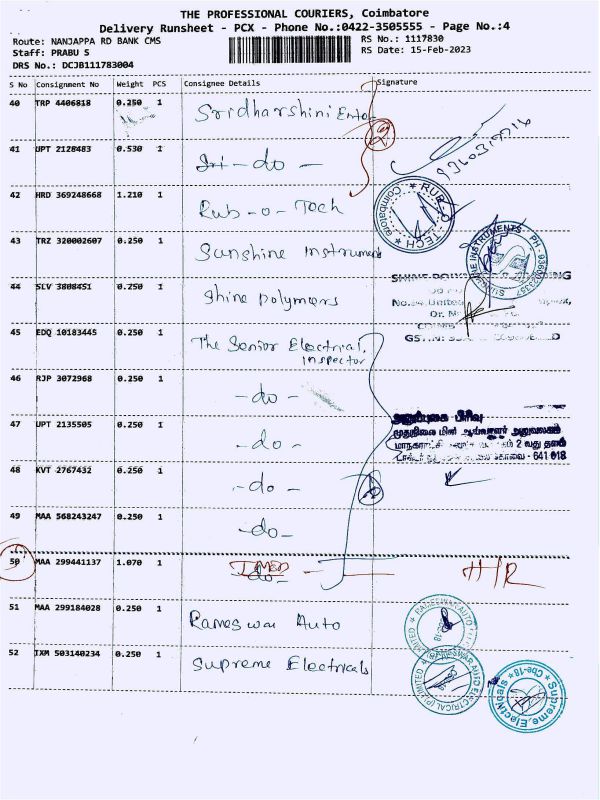 THE PROFESSIONAL COURIERS, Coimbatore
Delivery Runsheet - PCX - Phone No.:0422-3505555 - Page No.:4
Route: NANJAPPA RD BANK CMS
RS No.: 1117830
Staff: PRABU S
RS Date: 15-Feb-2023
DRS No.: DCJB111783004
S No Consignment No Weight PCS Consignee Details Signature
40 TRP 4406818 0.250 1 Sridharshini
41 UPT 2128483 0.530 1 - do -
42 HRD 369248668 1.210 1 Rub - o - Tech
RUB - O - TECH
Coimbatore
43 TRZ 320002607 0.250 1 Sunshine Instruments
SUNSHINE INSTRUMENTS
44 SLV 3808451 0.250 1 Shine polymers
45 EDQ 10183445 0.250 1 The Senior Electrical,
Inspector
46 RJP 3072968 0.250 1 - do -
47 UPT 2135505 0.250 1 - do -
அனுப்புகை பிரிவு
முதுநிலை மின் ஆய்வாளர் அலுவலகம்
2 வது தளம்
கோவை - 641 018
48 KVT 2767432 0.250 1 - do -
49 MAA 568243247 0.250 1 - do -
50 MAA 299441137 1.070 1
51 MAA 299184028 0.250 1 Rameswar Auto
52 IXM 503140234 0.250 1 Supreme Electricals
RAMESWAR AUTO ELECTRICAL (P) LIMITED
Supreme Electricals
Cbe-18